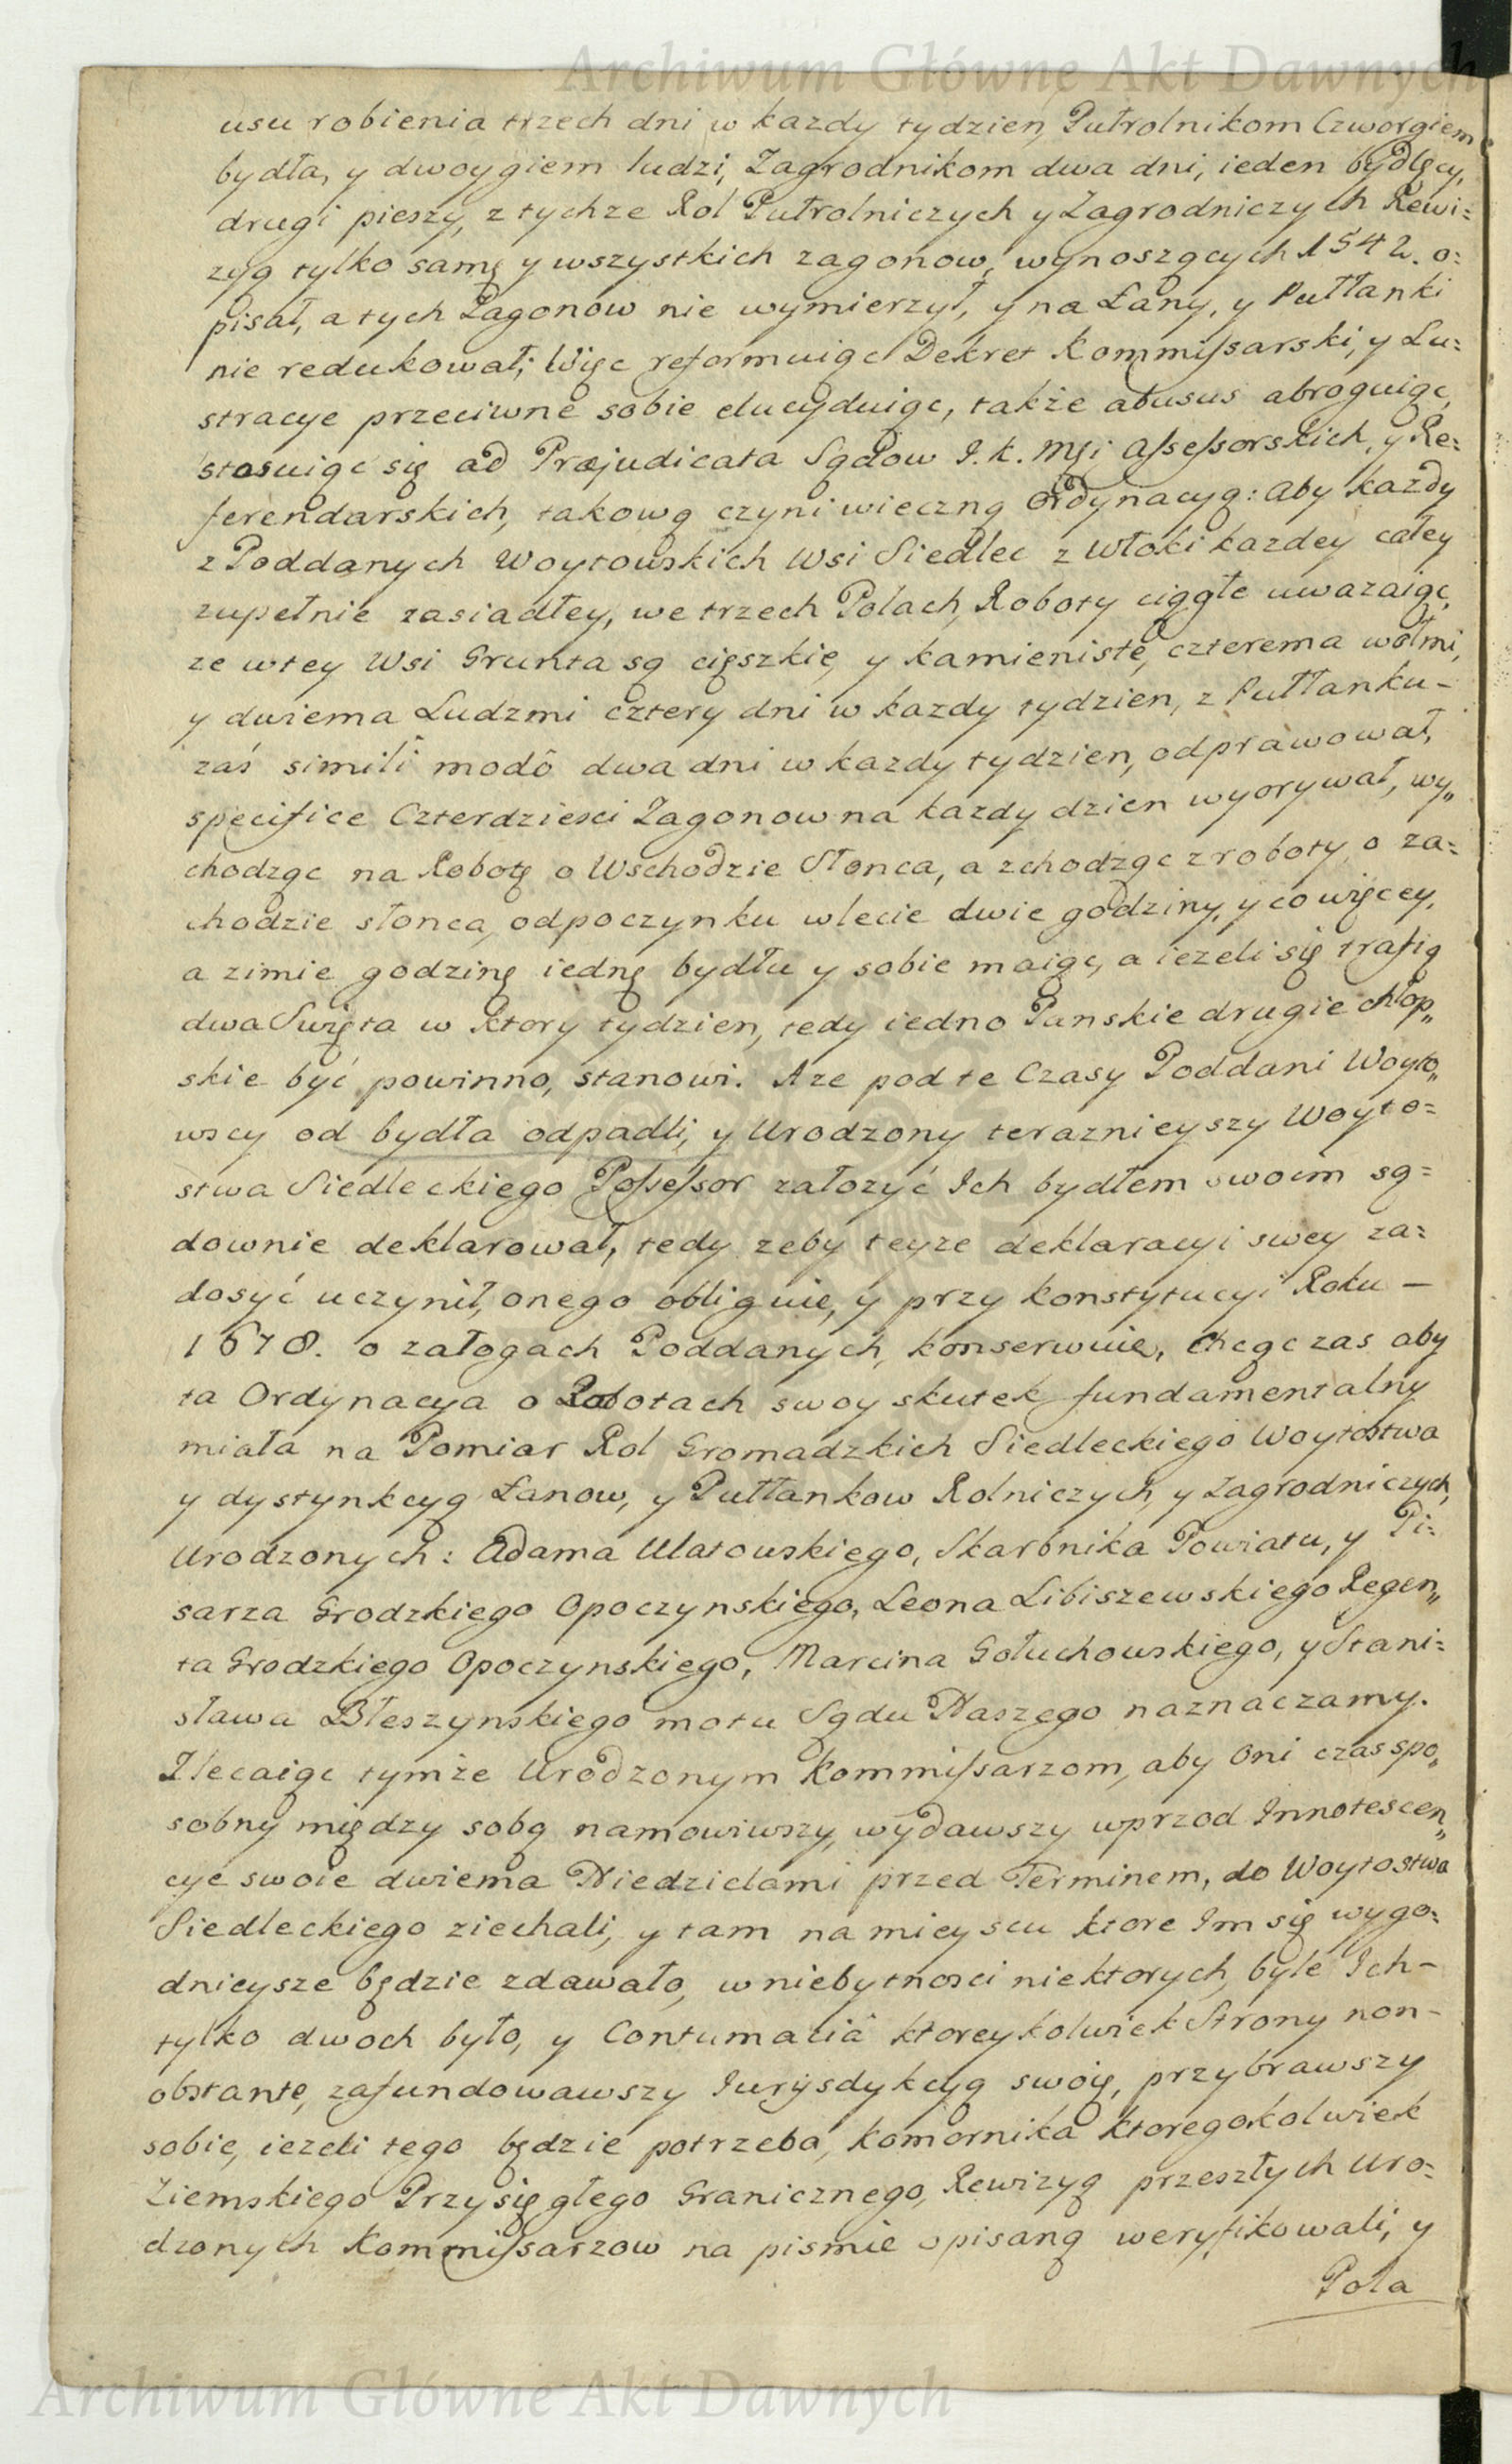 Archiwum Główne Akt Dawnych
usu robienia trzech dni w kazdy tydzien, Pułrolnikom Czworgiem
bydła, y dwoygiem ludzi, Zagrodnikom dwa dni, ieden bydlęcy,
drugi pieszy, z tychze Rol Pułrolniczych y Zagrodniczych Rewi=
zyą tylko samę y wszystkich zagonow, wynoszących 1542. o=
pisał, a tych Zagonow nie wymierzył, y na Łany, y Pułłanki
nie redukował; Więc reformuiąc Dekret Kommissarski, y Lu=
stracye przeciwne sobie elucyduiąc, także abusus abroguiąc,
stosuiąc się ad Præjudicata Sądow J. K. Mści Assessorskich, y Re=
ferendarskich, takową czyni wieczną Ordynacyą: Aby kazdy
z Poddanych Woytowskich Wsi Siedlec z Włoki kazdey całey
zupełnie zasiadłey, we trzech Polach, Roboty ciągłe uwazaiąc,
ze w tey Wsi Grunta są cięszkie, y kamieniste, czterema wołmi,
y dwiema Ludzmi cztery dni w kazdy tydzien, z Pułłanku -
zaś simili modô dwa dni w kazdy tydzien, odprawował,
specifice Czterdziesci Zagonow na kazdy dzien wyorywał, wy„
chodząc na Robotę o Wschodzie Słonca, a zchodząc z roboty o za=
chodzie słonca, odpoczynku w lecie dwie godziny, y co więcey,
a zimie godzinę iednę bydłu y sobie maiąc, a iezeli się trafią
dwa Swięta w ktory tydzien, tedy iedno Panskie drugie chłop„
skie być powinno, stanowi. A ze pod te Czasy Poddani Woyto„
wscy od bydła odpadli, y Urodzony teraznieyszy Woyto=
stwa Siedleckiego Possessor załozyć Ich bydłem swoim są=
downie deklarował, tedy zeby teyze deklaracyi swey za=
dosyć uczynił, onego obliguie, y przy konstytucyi Roku —
1678. o załogach Poddanych, konserwuie, chcąc zas aby
ta Ordynacya o Robotach swoy skutek fundamentalny
miała na Pomiar Rol Gromadzkich Siedleckiego Woytostwa
y dystynkcyą Łanow, y Pułłankow Rolniczych, y Zagrodniczych,
Urodzonych: Adama Ulatowskiego, Skarbnika Powiatu, y Pi=
sarza Grodzkiego Opoczynskiego, Leona Libiszewskiego Regen„
ta Grodzkiego Opoczynskiego, Marcina Gołuchowskiego, y Stani=
sława Błeszynskiego motu Sądu Naszego naznaczamy.
Zlecaiąc tymże Urodzonym Kommissarzom, aby Oni czas spo„
sobny między sobą namowiwszy, wydawszy wprzod Innotescen„
cye swoie dwiema Niedzielami przed Terminem, do Woytostwa
Siedleckiego ziechali, y tam na mieyscu ktore Im się wygo=
dnieysze będzie zdawało, w niebytnosci niektorych, byle Ich -
tylko dwoch było, y Contumatiâ ktoreykolwiek Strony non -
obstante, zafundowawszy Jurysdykcyą swoię, przybrawszy
sobie, iezeli tego będzie potrzeba, Komornika ktoregokolwiek
Ziemskiego Przysięgłego Granicznego, Rewizyą przeszłych Uro=
dzonych Kommissarzow na pismie opisaną weryfikowali, y
Pola
Archiwum Główne Akt Dawnych